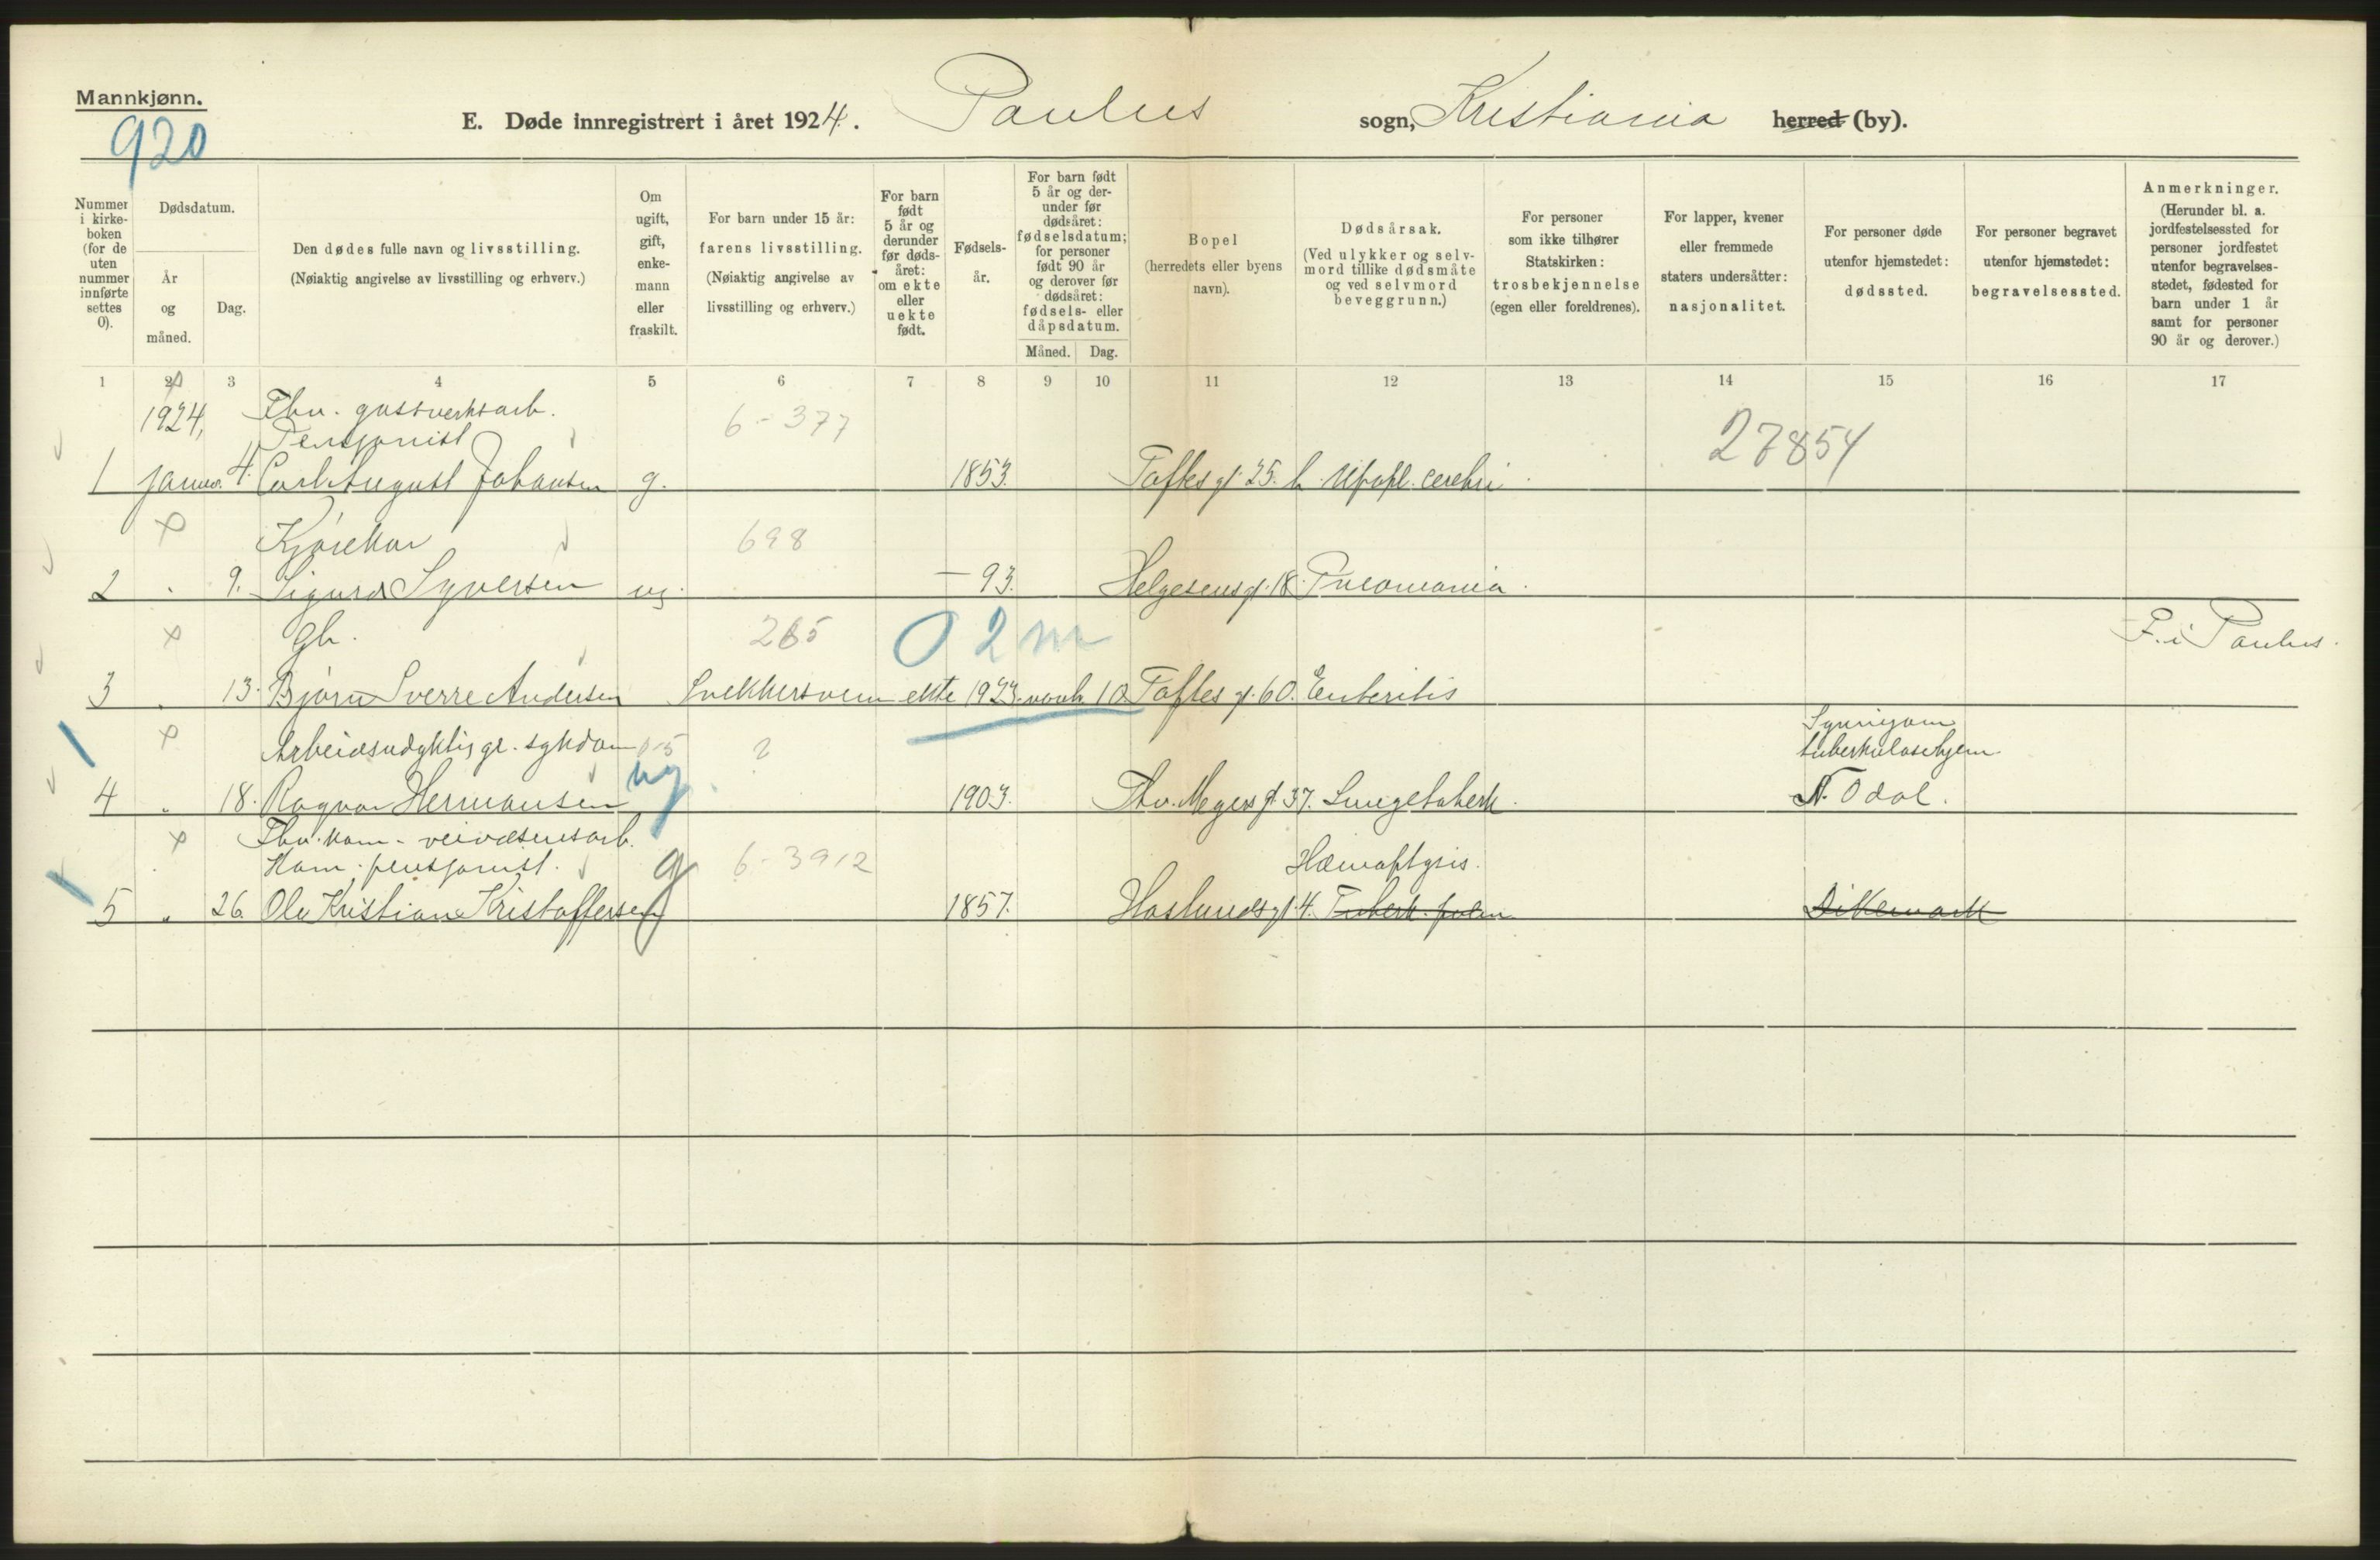 Mannkjønn.
920
E. Døde innregistrert i året 1924. Paulus sogn, Kristiania herred (by).
Nummer i kirkeboken (for de uten nummer innførte settes 0).
Dødsdatum.
År og måned.
Dag.
Den dødes fulle navn og livsstilling.
(Nøiaktig angivelse av livsstilling og erhverv.)
Om ugift, gift, enkemann eller fraskilt.
For barn under 15 år: farens livsstilling.
(Nøiaktig angivelse av livsstilling og erhverv.)
For barn født 5 år og derunder før dødsåret: om ekte eller uekte født.
Fødselsår.
For barn født 5 år og derunder før dødsåret: fødselsdatum; for personer født 90 år og derover før dødsåret: fødsels- eller dåpsdatum.
Måned. Dag.
Bopel (herredets eller byens navn).
Dødsårsak.
(Ved ulykker og selvmord tillike dødsmåte og ved selvmord beveggrunn.)
For personer som ikke tilhører Statskirken: trosbekjennelse (egen eller foreldrenes).
For lapper, kvener eller fremmede staters undersåtter: nasjonalitet.
For personer døde utenfor hjemstedet: dødssted.
For personer begravet utenfor hjemstedet: begravelsessted.
Anmerkninger.
(Herunder bl. a. jordfestelsessted for personer jordfestet utenfor begravelsesstedet, fødested for barn under 1 år samt for personer 90 år og derover.)
1 2 3 4 5 6 7 8 9 10 11 12 13 14 15 16 17
1924, Fhv. gassverksarb. 6-377 27854
Pensjonist
1 januar. 4. Carl August Johansen g. 1853. Toftes gt. 25. b Apopl. cerebri
Kjørekar 698
2 " 9. Sigurd Syversen ug. - 93. Helgesensgt. 18. Pneomonia.
gb. 265 0 2 m F. i Paulus.
3 " 13. Bjørn Sverre Andersen Snekkersvenn ekte 1923. novb. 10 Toftes gt. 60. Enteritis
Arbeidsudyktig gr. sykdom 0-5 ? tuberkulosehjem
4 " 18. Ragnar Hermansen ug 1903. Thv. Meyers gt. 37. Lungetuberk. N. Odal.
Fhv. kom. veivæsensarb.
Kom. pensjonist. 6-3912 Hæmoptysis.
5 " 26. Ole Kristian Kristoffersen g 1857. Haslundsgt. 4. Tuberk. pulm Dikemark